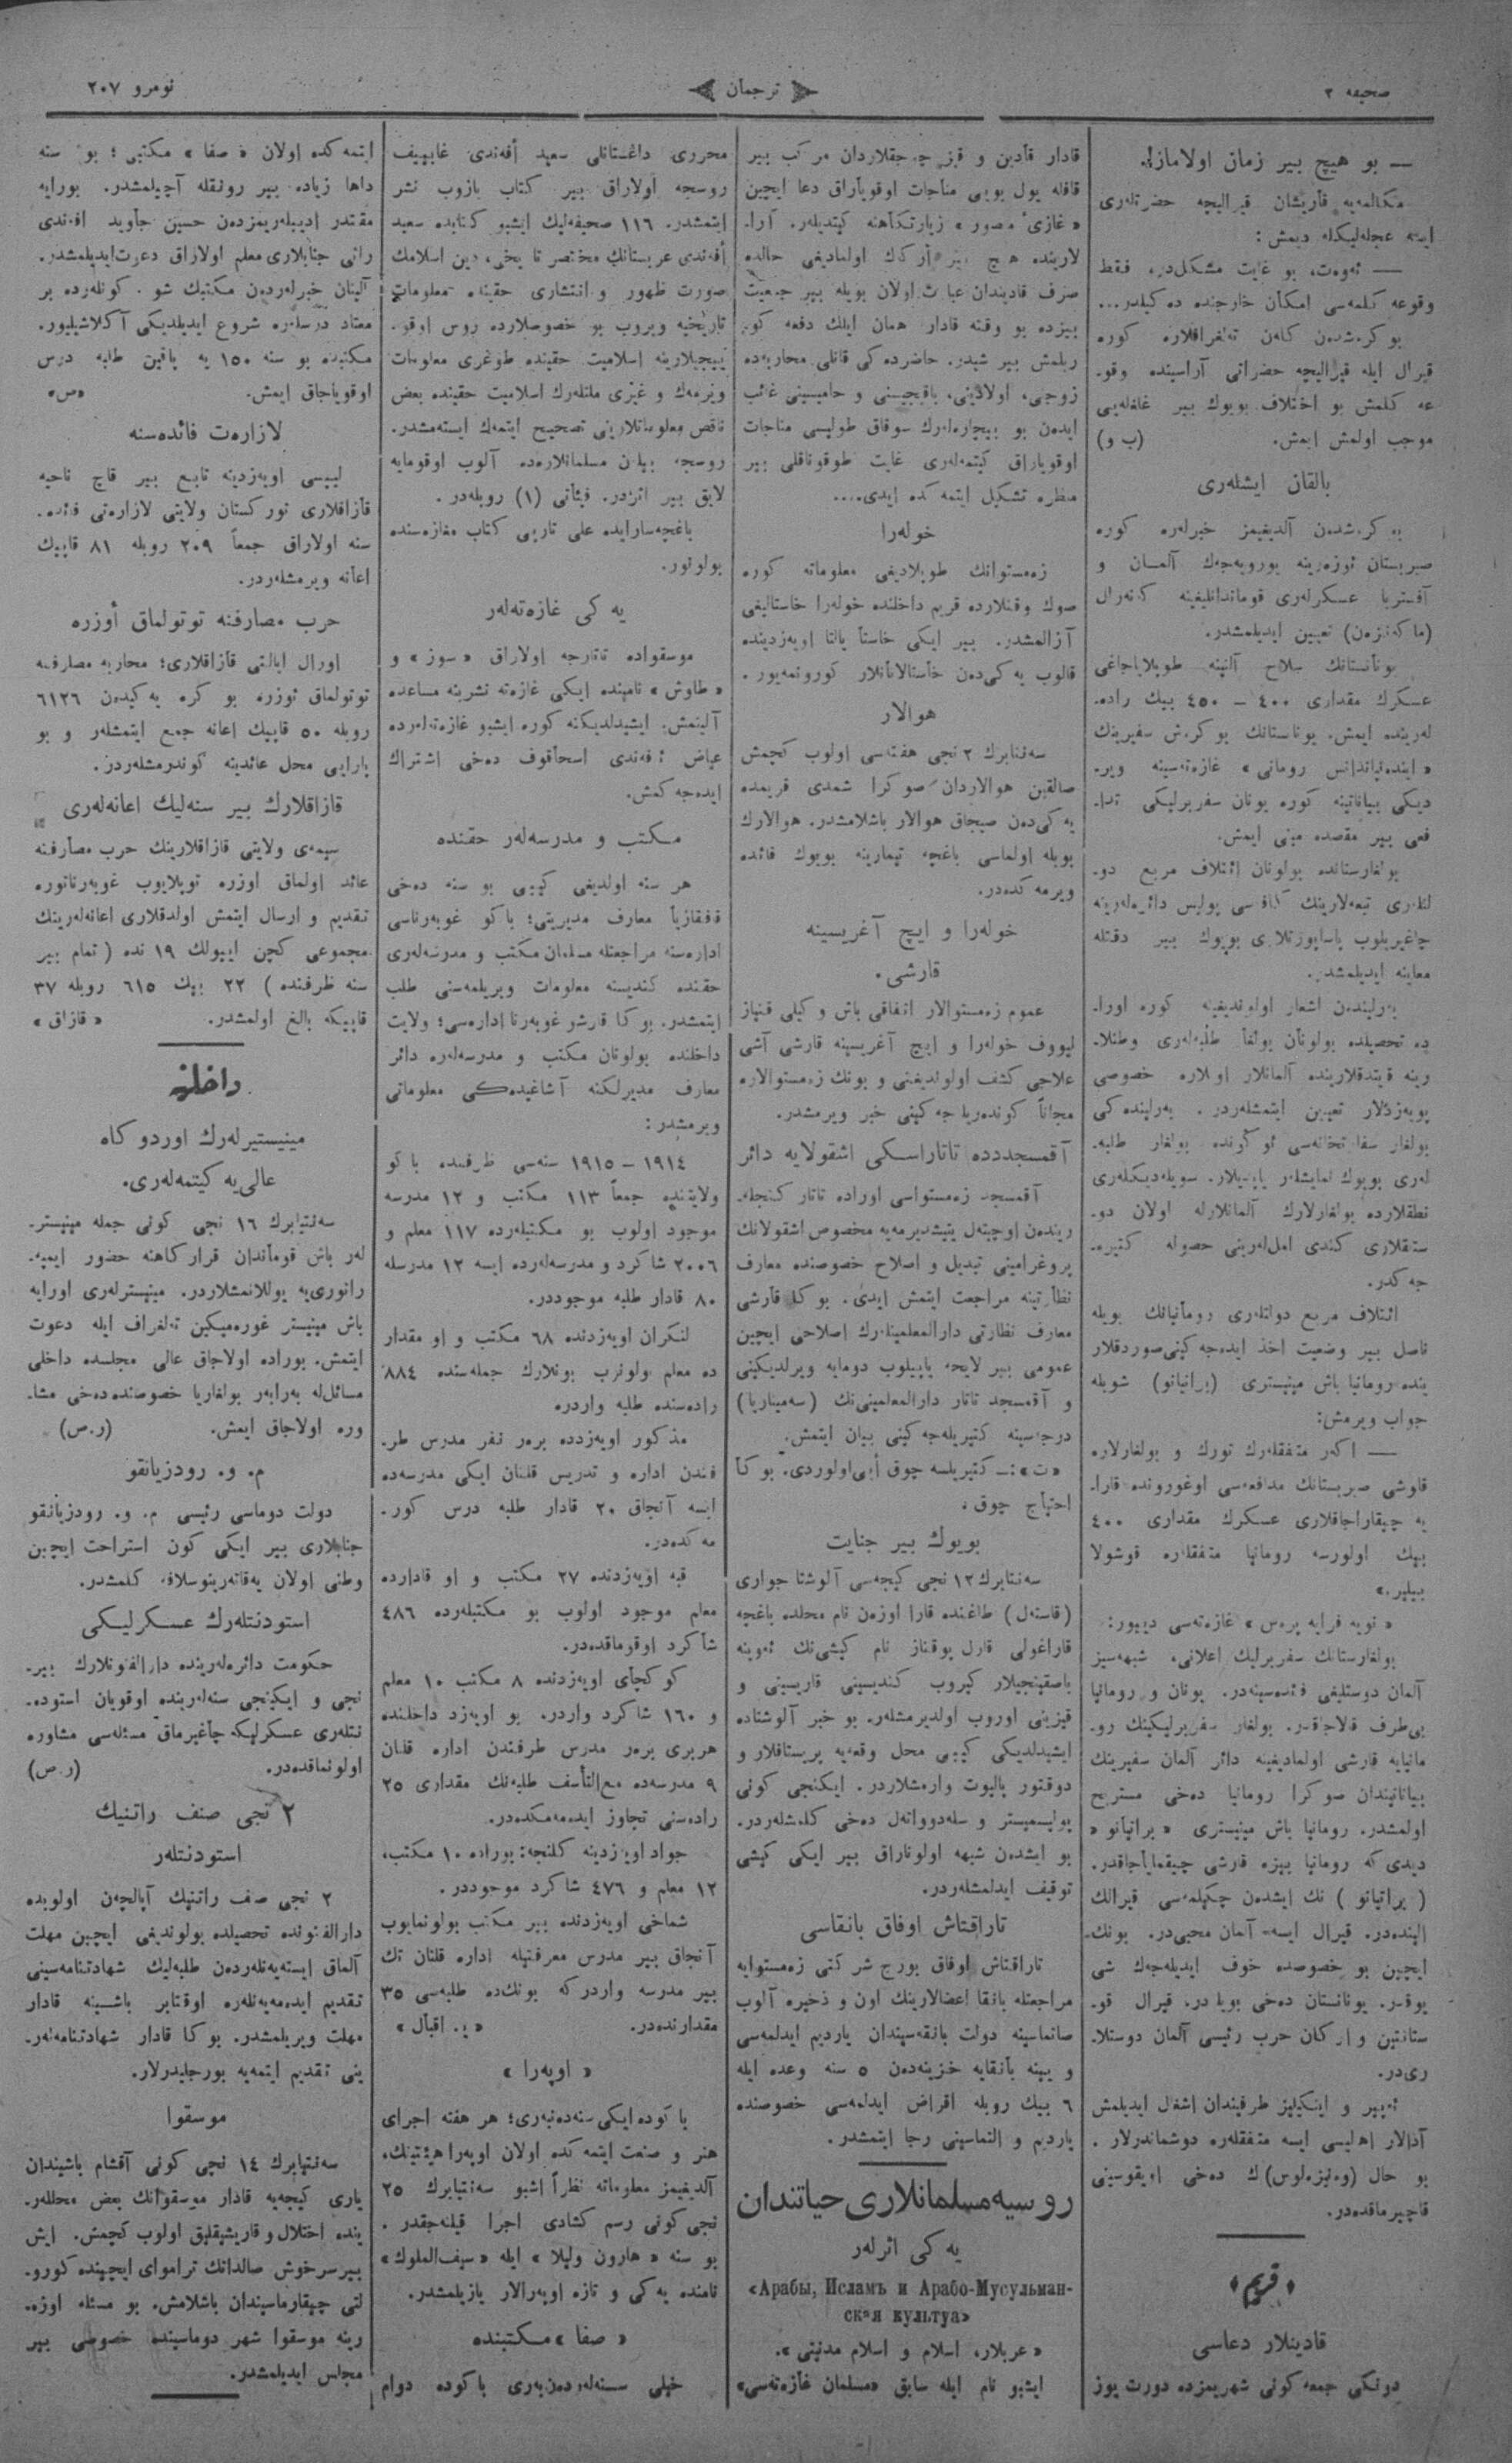 صحیفه ۲
ترجمان
نومرو ۲۰۷
— بو هیچ بیر زمان اولاماز!.
مکالمه‌یه قاریشان قیرالیچه حضرتلەری
ایسه عجله‌لیکله دیمش:
— ئەوەت، بو غایت مشکل‌در، فقط
وقوعه کلمەسی امکان خارجنده دەکیلدر...
بوکرەشدن کلەن تەلغرافلاره کوره
قیرال ایله قیرالیچه حضراتی آراسینده وقو-
عه کلمش بو اختلاف بویوك بیر غلغله‌یی
موجب اولمش ایمش. (ب و)
بالقان ایشلەری
بوکرەشدن آلدیغیمز خبرلەره کوره
صیربستان ئوزەرینه یورویەجەك آلمان و
آفستریا عسکرلەری قوماندانلیغینه کەنەرال
(ماکەنزەن) تعیین ایدیلمشدر.
یونانستانك سلاح آلتینه طوپلایاجاغی
عسکرك مقداری ٤٠٠ — ٤٥٠ بیك راده-
لەرینده ایمش. یوناستانك بوکرەش سفیرینك
« ایندەپاندانس رومانی » غازەتەسینه ویر-
دیکی بیاناتینه کوره یونان سفربرلیکی تدا-
فعی بیر مقصده مبنی ایمش.
بولغارستانده بولونان ائتلاف مربع دو-
لتلەری تبعەلارینك کافەسی پولیس دائرەلەرینه
چاغیریلوب پاساپورتلاری بویوك بیر دقتله
معاینه ایدیلمشدر.
بەرلیندەن اشعار اولوندیغینه کوره اورا-
ده تحصیلده بولونان بولغار طلبەلەری وطنلا-
رینه قیتدقلارینده آلمانلار اولاره خصوصی
پویەزدلار تعیین ایتمشلەردر. بەرلیندەکی
بولغار سفارتخانەسی ئوکونده بولغار طلبه-
لەری بویوك نمایشلەر یاپدیلار. سویلەدیکلەری
نطقلارده بولغارلارك آلمانلارله اولان دو-
ستلقلاری کندی امللەرینی حصوله کتیره-
جەکدر.
ائتلاف مربع دولتلەری رومانیانك بویله
ناصل بیر وضعیت اخذ ایدەجەکینی صوردقلار
ینده رومانیا باش مینیستری (براتیانو) شویله
جواب ویرمش:
— اکەر متفقلەرك تورك و بولغارلاره
قارشی صیربستانك مدافعەسی اوغورونده قارا-
یه چیقاراجاقلاری عسکرك مقداری ٤٠٠
بیك اولورسه رومانیا متفقلەره قوشولا
بیلیر.»
« نویه فرایه پرەس » غازەتەسی دییور:
بولغارستانك سفربرلیك اعلانی، شبهەسیز
آلمان دوستلیغی فائدەسینەدر. یونان و رومانیا
بی‌طرف قالاجاقدر. بولغار سفربرلیکینك رو-
مانیایه قارشی اولمادیغینه دائر آلمان سفیرینك
بیاناتیندان صوکرا رومانیا دەخی مستریح
اولمشدر. رومانیا باش مینیستری « براتیانو »
دیدی که رومانیا بیزه قارشی چیقمایاجاقدر.
( براتیانو ) نك ایشدەن چکیلمەسی قیرالك
الیندەدر. قیرال ایسه آلمان محبی‌در. بونك-
ایچین بو خصوصده خوف ایدیلەجەك شی
یوقدر. یونانستان دەخی بویله‌در. قیرال قو-
ستانتین و ارکان حرب رئیسی آلمان دوستلا-
ری‌در.
ئەییر و اینکیلیز طرفیندان اشغال ایدیلمش
آدالار اهلیسی ایسه متفقلەره دوشماندرلار.
بو حال (وەنیزەلوس)ك دەخی اویقوسینی
قاچیرماقدەدر.
قریم
قادینلار دعاسی
دونکی جمعه کونی شهریمزده دورت یوز
قادار قادین و قیز چوجقلاردان مرکب بیر
قافله یول بویی مناجات اوقویاراق دعا ایچین
« غازیٔ منصور » زیارتکاهنه کیتدیلەر. آرا-
لارینده هیچ بیر أرکك اولمادیغی حالده
صرف قادیندان عبارت اولان بویله بیر جمعیت
بیزده بو وقته قادار همان ایلك دفعه کو-
ریلمش بیر شیدر. حاضردەکی قانلی محاربەده
زوجی، اولادینی، باقیجیسنی و حامیسینی غائب
ایدەن بو بیچارەلەرك سوقاق طولیسی مناجات
اوقویاراق کیتمەلەری غایت طوقوناقلی بیر
منظره تشکیل ایتمەکده ایدی....
خولەرا
زەمستوانك طوپلادیغی معلوماته کوره
صوك وقتلارده قریم داخلنده خولەرا خاستالیغی
آزالمشدر. بیر ایکی خاستا یالتا اویەزدینده
قالوب یەکی‌دەن خاستالانانلار کورونمەیور.
هوالار
سەنتابرك ۲ نجی هفتەسی اولوب کچمش
صالقین هوالاردان صوکرا شمدی قریمده
یەکی‌دەن صیجاق هوالار باشلامشدر. هوالارك
بویله اولماسی باغچه تیمارینه بویوك فائده
ویرمەکدەدر.
خولەرا و ایچ آغریسینه
قارشی.
عموم زەمستوالار اتفاقی باش وکیلی قنیاز
لیووف خولەرا و ایچ آغریسینه قارشی آشی
علاجی کشف اولوندیغنی و بونك زەمستوالاره
مجاناً کوندەریلەجەکینی خبر ویرمشدر.
آقمسجدده تاتاراسکی اشقولایه دائر
آقمسجد زەمستواسی اوراده تاتار کنجلە-
ریندەن اوچیتەل یتیشدیرمەیه مخصوص اشقولانك
پروغرامینی تبدیل و اصلاح خصوصنده معارف
نظارتینه مراجعت ایتمش ایدی. بوکا قارشی
معارف نظارتی دارالمعلمینلەرك اصلاحی ایچین
عمومی بیر لایحه یاپیلوب دومایه ویرلدیکینی
و آقمسجد تاتار دارالمعلمینی‌نك (سەمیناریا)
درجەسینه کتیریلەجەکینی بیان ایتمش.
«ت»:— کتیریلسه چوق أیی اولوردی. بوکا
احتیاج چوق.
بویوك بیر جنایت
سەنتابرك ۱۲ نجی کیجەسی آلوشتا جواری
(قاستەل) طاغنده قارا اوزەن نام محلده باغچه
قاراغولی قارل یوقناز نام کیشی‌نك ئەوینه
باصقینجیلار کیروب کندیسینی قاریسینی و
قیزینی اوروب اولدیرمشلەر. بو خبر آلوشتاده
ایشیدلدیکی کیبی محل وقعەیه پریستافلار و
دوقتور یالیوت وارمشلاردر. ایکنجی کونی
پولیسمیستر و سلەدوواتەل دەخی کلمشلەردر.
بو ایشدەن شبهه اولوناراق بیر ایکی کیشی
توقیف ایدلمشلەردر.
تاراقتاش اوفاق بانقاسی
تاراقتاش اوفاق بورج شرکتی زەمستوایه
مراجعتله بانقا اعضالارینك اون و ذخیره آلوب
صاتماسینه دولت بانقەسیندان یاردیم ایدلمەسی
و یینه بانقایه خزینەدەن ٥ سنه وعده ایله
٦ بیك روبله اقراض ایدلمەسی خصوصنده
یاردیم و التماسینی رجا ایتمشدر.
روسیه مسلمانلاری حیاتندان
یەکی اثرلەر
«Арабы, Исламъ и Арабо-Мусульман-
ская культуа»
« عربلار، اسلام و اسلام مدنیتی ».
ایشبو نام ایله سابق «مسلمان غازەتەسی»
محرری داغستانلی سعید أفەندی غاییبیف
روسجه اولاراق بیر کتاب یازوب نشر
ایتمشدر. ۱۱٦ صحیفەلیك ایشبو کتابده سعید
أفەندی عربستانك مختصر تاریخی، دین اسلامك
صورت ظهور و انتشاری حقینده معلومات
تاریخیه ویروب بو خصوصلارده روس اوقو-
ییجیلارینه اسلامیت حقینده طوغری معلومات
ویرمەك و غیری ملتلەرك اسلامیت حقینده بعض
ناقص معلوماتلارینی تصحیح ایتمەك ایستەمشدر.
روسجه بیلن مسلمانلارەده آلوب اوقومایه
لایق بیر اثردر. فیئأتی (۱) روبلەدر.
باغچەسارایده علی تارپی کتاب مغازەسنده
بولونور.
یەکی غازەتەلەر
موسقواده تاتارجه اولاراق «سوز» و
« طاوش » نامینده ایکی غازەته نشرینه مساعده
آلینمش. ایشیدلدیکنه کوره ایشبو غازەتەلەرده
عیاض أفەندی اسحاقوف دەخی اشتراك
ایدەجەکمش.
مکتب و مدرسەلەر حقنده
هر سنه اولدیغی کیبی بو سنه دەخی
قفقازیا معارف مدیریتی؛ باکو غوبەرناسی
ادارەسنه مراجعتله مسلمان مکتب و مدرسەلەری
حقنده کندیسنه معلومات ویریلمەسنی طلب
ایتمشدر. بوکا قارشو غوبەرنا ادارەسی؛ ولایت
داخلنده بولونان مکتب و مدرسەلەره دائر
معارف مدیرلکنه آشاغیدەکی معلوماتی
ویرمشدر:
۱۹۱٤ — ۱۹۱٥ سنەسی ظرفنده باکو
ولایتنده جمعاً ۱۱۳ مکتب و ۱۲ مدرسه
موجود اولوب بو مکتبلەرده ۱۱۷ معلم و
۲۰۰٦ شاکرد و مدرسەلەرده ایسه ۱۲ مدرسله
۸۰ قادار طلبه موجوددر.
لنکران اویەزدنده ٦۸ مکتب و او مقدار
ده معلم بولونوب بونلارك جملەسنده ۸۸٤
رادەسنده طلبه واردر.
مذکور اویەزدده برەر نفر مدرس طر-
فندن اداره و تدریس قلنان ایکی مدرسەده
ایسه آنجاق ۲۰ قادار طلبه درس کور-
مەکدەدر.
قبه اویەزدنده ۲۷ مکتب و او قادارده
معلم موجود اولوب بو مکتبلەرده ٤۸٦
شاکرد اوقوماقدەدر.
کوکچای اویەزدنده ۸ مکتب ۱۰ معلم
و ۱٦۰ شاکرد واردر. بو اویەزد داخلنده
هربری برەر مدرس طرفندن اداره قلنان
۹ مدرسەده مع‌التأسف طلبەنك مقداری ۲٥
رادەسنی تجاوز ایدەمەمکدەدر.
جواد اویەزدینه کلنجه: بوراده ۱۰ مکتب،
۱۲ معلم و ٤۷٦ شاکرد موجوددر.
شماخی اویەزدنده بیر مکتب بولونمایوب
آنجاق بیر مدرس معرفتیله اداره قلنان تك
بیر مدرسه واردرکه بونك‌ده طلبەسی ۳٥
مقدارندەدر. «ی. اقبال»
« اوپەرا »
باکوده ایکی سنەدەنبەری؛ هر هفته اجرای
هنر و صنعت ایتمەکده اولان اوپەرا هیئتینك،
آلدیغیمز معلوماته نظراً اشبو سەنتیابرك ۲٥
نجی کونی رسم کشادی اجرا قیلنەجقدر.
بو سنه « هارون ولیلا » ایله «سیف‌الملوك»
نامنده یەکی و تازه اوپەرالار یازیلمشدر.
« صفا » مکتبنده
خیلی سنەلەردەن‌بەری باکوده دوام
ایتمەکده اولان « صفا » مکتبی؛ بو سنه
داها زیاده بیر رونقله آچیلمشدر. بورایه
مقتدر ادیبلەریمزدەن حسین جاوید افندی
راتی جنابلاری معلم اولاراق دعوت ایدیلمشدر.
آلینان خبرلەردەن مکتبك شو کونلەرده بر
معتاد درسلەره شروع ایدیلدیکی آکلاشیلیور.
مکتبده بو سنه ۱٥۰ یه یاقین طلبه درس
اوقویاجاق ایمش. «ص»
لازارەت فائدەسنه
لیپسی اویەزدینه تابع بیر قاچ ناحیه
قازاقلاری تورکستان ولایتی لازارەتی فائده-
سنه اولاراق جمعاً ۲۰۹ روبله ۸۱ قاپیك
اعانه ویرمشلەردر.
حرب مصارفنه توتولماق أوزره
اورال ایالتی قازاقلاری؛ محاربه مصارفنه
توتولماق ئوزره بو کره یەکیدن ٦۱۲٦
روبله ٥۰ قاپیك اعانه جمع ایتمشلەر و بو
پارایی محل عائدینه کوندرمشلەردر.
قازاقلارك بیر سنەلیك اعانەلەری
سیمەی ولایتی قازاقلارینك حرب مصارفنه
عائد اولماق اوزره توپلایوب غوبەرناتوره
تقدیم و ارسال ایتمش اولدقلاری اعانەلەرینك
مجموعی کچن اییولك ۱۹ نده ( تمام بیر
سنه ظرفنده ) ۲۲ بیك ٦۱٥ روبله ۳۷
قاپیکه بالغ اولمشدر. « قازاق »
داخلیه
مینیستیرلەرك اوردوکاه
عالی‌یه کیتمەلەری.
سەنتیابرك ۱٦ نجی کونی جمله مینیستر-
لەر باش قوماندان قرارکاهنه حضور ایمپه-
راتوری‌یه یوللانمشلاردر. مینیسترلەری اورایه
باش مینیستر غورەمیکین تەلغراف ایله دعوت
ایتمش. بوراده اولاجاق عالی مجلسده داخلی
مسائل‌له بەرابەر بولغاریا خصوصنده‌دخی مشا-
وره اولاجاق ایمش. (ر.ص)
م. و. رودزیانقو
دولت دوماسی رئیسی م. و. رودزیانقو
جنابلاری بیر ایکی کون استراحت ایچین
وطنی اولان یەقاتەرینوسلافه کلمشدر.
استودنتلەرك عسکرلیکی
حکومت دائرەلەرینده دارالفنونلارك بیر-
نجی و ایکینجی سنەلەرینده اوقویان استوده-
نتلەری عسکرلیکه چاغیرماق مسئلەسی مشاوره
اولونماقدەدر. (ر.ص)
۲ نجی صنف راتنیك
استودنتلەر
۲ نجی صنف راتنیك آپالچەن اولوبده
دارالفنونده تحصیلده بولوندیغی ایچین مهلت
آلماق ایستەیەنلەردەن طلبەلیك شهادتنامەسینی
تقدیم ایدەمەیەنلەره اوقتابر باشینه قادار
مهلت ویریلمشدر. بوکا قادار شهادتنامەلەر-
ینی تقدیم ایتمەیه بورجلیدرلار.
موسقوا
سەنتیابرك ۱٤ نجی کونی آقشام باشیندان
یاری کیجەیه قادار موسقوانك بعض محللەر-
ینده اختلال و قاریشیقلیق اولوب کچمش. ایش
بیر سرخوش صالدانك تراموای ایچینده کورو-
لتی چیقارماسیندان باشلامش. بو مسئله اوزه-
رینه موسقوا شهر دوماسینده خصوصی بیر
مجلس ایدیلمشدر.